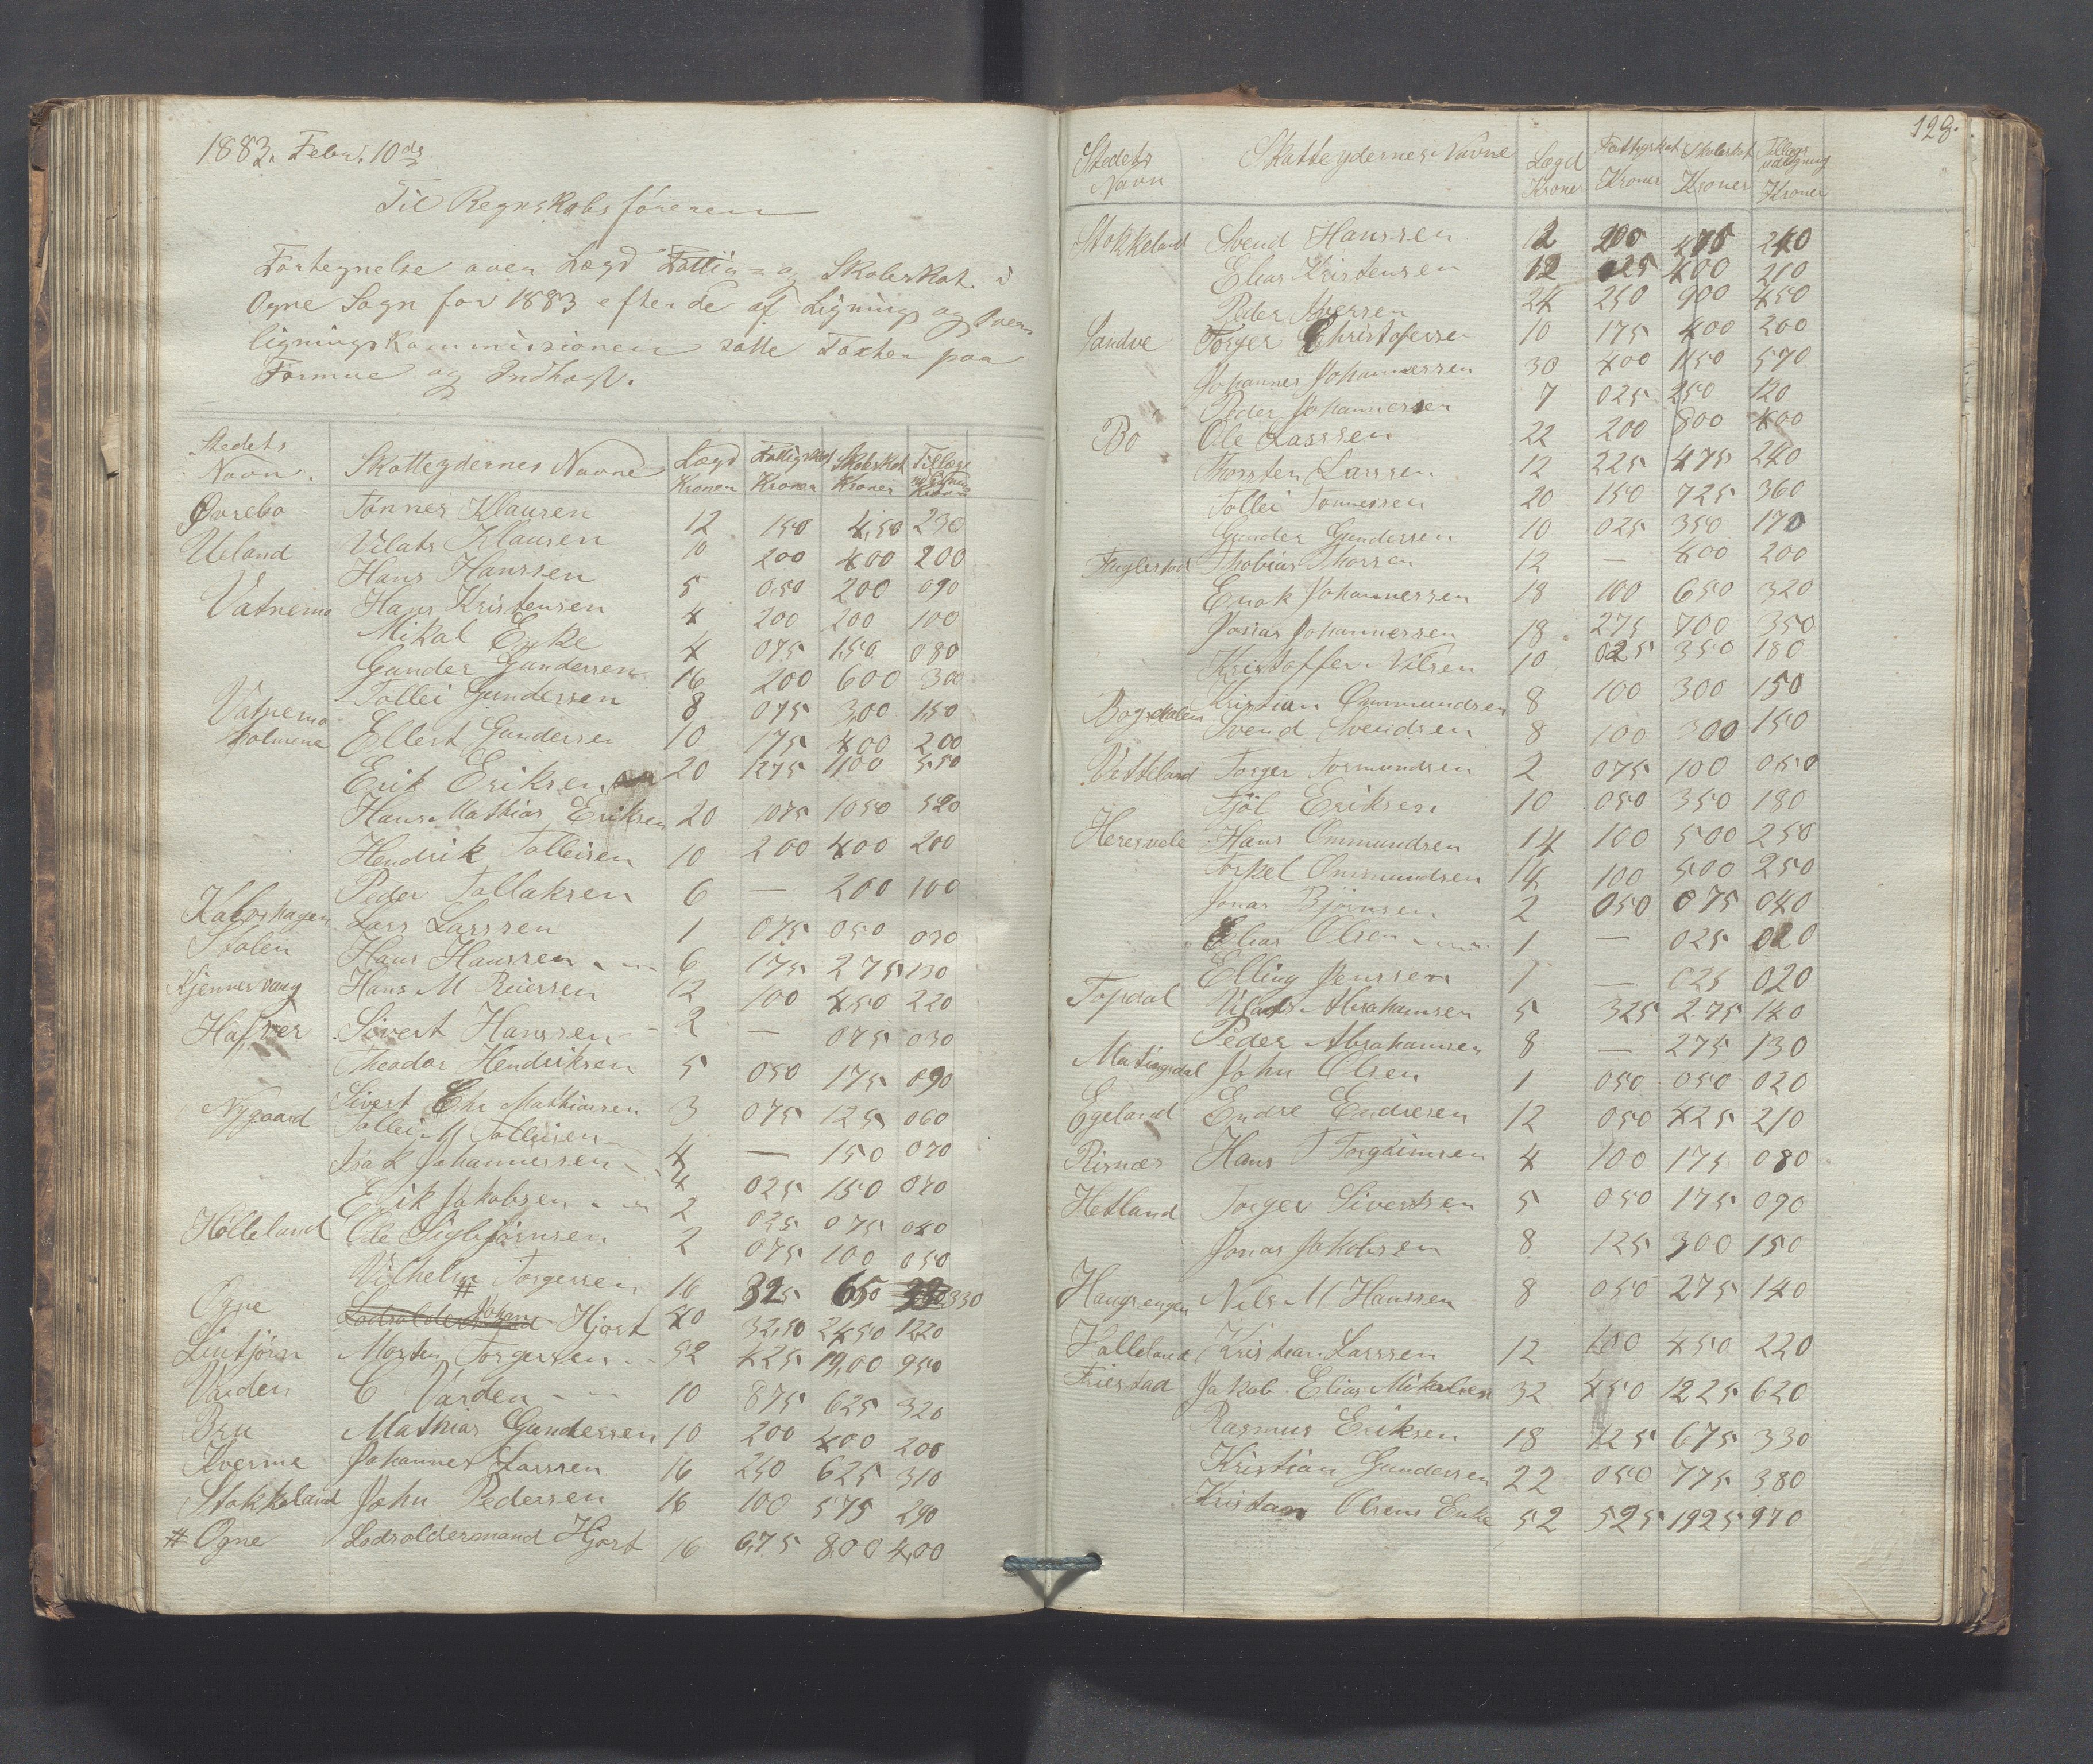 1883. Febr. 10de
Til Regnskabsføreren
Fortegnelse over Lægd Fattig- og Skoleskat i
Ogne Sogn for 1883 efter de af Ligning og Over
ligningskommissionen satte Taxter paa
Formue og Indtægt.
Stedets Navn. Skatteydernes Navne Lægd Kroner Fattigskat Kroner Skoleskat Kroner Tillægs udligning Kroner
Øvrebø Tønnes Klausen 12 150 4,50 230
Ueland Vilats Klausen 10 200 400 200
Hans Hanssen 5 050 200 090
Vatnemo Hans Kristensen 4 200 200 100
Mikal Enke 4 075 150 080
Gunder Gundersen 16 200 600 300
Tollei Gundersen 8 075 3,00 150
Vatnemo holmene Ellert Gundersen 10 175 400 200
Erik Eriksen 20 1275 1100 550
Hans Mathias Eriksen 20 1075 1050 520
Hendrik Tolleisen 10 200 400 200
Peder Tollaksen 6 — 200 100
Kalvshagen Lars Larssen 1 075 050 030
Stølen Hans Hanssen 6 175 275 130
Kjennesvaag Hans M Reiersen 12 100 450 220
Hafsver Sivert Hanssen 2 — 075 030
Theodor Hendriksen 5 050 175 090
Nygaard Sivert Chr Mathiasen 3 075 125 060
Tollei M Tolleisen 4 — 150 070
Isak Johannessen 4 025 150 070
Erik Jakobsen 2 025 075 040
Hølleland Ole Sigbjørnsen 2 075 100 050
Vilhelm Torgersen 16 325 650 330
Ogne # Johan Hjort 40 32,50 2450 1220
Lintjørn Morten Torgersen 52 425 19,00 950
Varden C Varden 10 875 625 320
Bru Mathias Gundersen 10 200 400 200
Kverme Johannes Larssen 16 250 625 310
Stokkeland John Pedersen 16 100 575 290
# Ogne Lodsoldermand Hjort 16 6,75 8,00 4,00
128.
Stedets Navn Skatteydernes Navne Lægd Kroner Fattigskat Kroner Skoleskat Kroner Tillægs udligning Kroner
Stokkeland Svend Hanssen 12 200 475 240
Elias Kristensen 12 025 400 210
Peder Iversen 24 250 900 450
Sandve Torger Christofersen 10 175 400 200
Johannes Johannessen 30 400 1150 570
Peder Johannessen 7 025 250 120
Bø Ole Larssen 22 200 800 400
Thorsten Larssen 12 225 475 240
Tollei Tønnessen 20 150 725 360
Gunder Gundersen 10 025 350 170
Fuglestad Thobias Thorsen 12 — 400 200
Enok Johannessen 18 100 650 320
Josias Johannessen 18 275 700 350
Kristoffer Nilsen 10 025 350 180
Kristian Ommundsen 8 100 300 150
Bogsdalen Svend Svendsen 8 100 300 150
Vetteland Torger Tormundsen 2 075 100 050
Fjøl Eriksen 10 050 350 180
Heresvele Hans Ommundsen 14 100 500 250
Torkel Ommundsen 14 100 500 250
Jonas Bjørnsen 2 050 075 040
Elias Olsen 1 — 025 020
Elling Jenssen 1 — 025 020
Topdal Vilads Abrahamsen 5 325 275 140
Peder Abrahamsen 8 — 275 130
Matingsdal John Olsen 1 050 050 020
Egeland Endre Endresen 12 050 425 210
Risnæs Hans T Torgrimsen 4 100 175 080
Hetland Torger Sivertsen 5 050 175 090
Jonas Jakobsen 8 125 300 150
Haugsengen Nils M Hanssen 8 050 275 140
Hølleland Kristian Larssen 12 100 450 220
Friestad Jakob Elias Mikalsen 32 450 1225 620
Rasmus Eriksen 18 125 675 330
Kristian Gundersen 22 050 775 380
Kristan Olsens Enke 52 525 1925 970